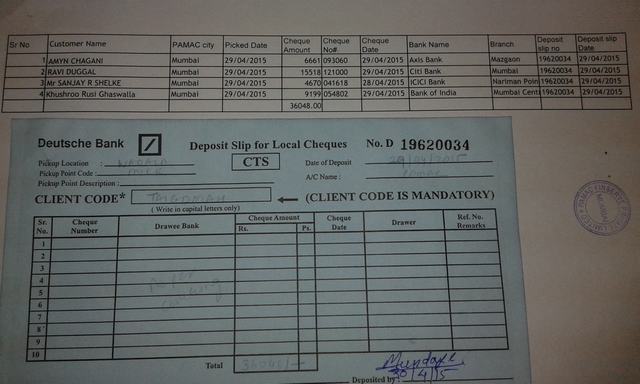 Sr No Customer Name PAMAC city Picked Date Cheque Amount Cheque No#. Cheque Date Bank Name Branch Deposit slip no Deposit slip Date
1 AMYN CHAGANI Mumbai 29/04/2015 6661 093060 29/04/2015 Axis Bank Mazgaon 19620034 29/04/2015
2 RAVI DUGGAL Mumbai 29/04/2015 15518 121000 29/04/2015 Citi Bank Mumbai 19620034 29/04/2015
3 Mr SANJAY R SHELKE Mumbai 29/04/2015 4670 041618 28/04/2015 ICICI Bank Nariman Poin 19620034 29/04/2015
4 Khushroo Rusi Ghaswalla Mumbai 29/04/2015 9199 054802 29/04/2015 Bank of India Mumbai Cent 19620034 29/04/2015
36048.00
Deutsche Bank Deposit Slip for Local Cheques No. D 19620034
Pickup Location : WADALA CTS Date of Deposit 29/04/2015
Pickup Point Code : A/C Name : PAMAC
Pickup Point Description :
CLIENT CODE* (CLIENT CODE IS MANDATORY)
( Write in capital letters only)
Sr. No. Cheque Number Drawee Bank Cheque Amount Rs. Ps. Cheque Date Drawer Ref. No. Remarks
1
2
3
4
5
6
7
8
9
10
Total 36048/-
Deposited by :
30/4/15